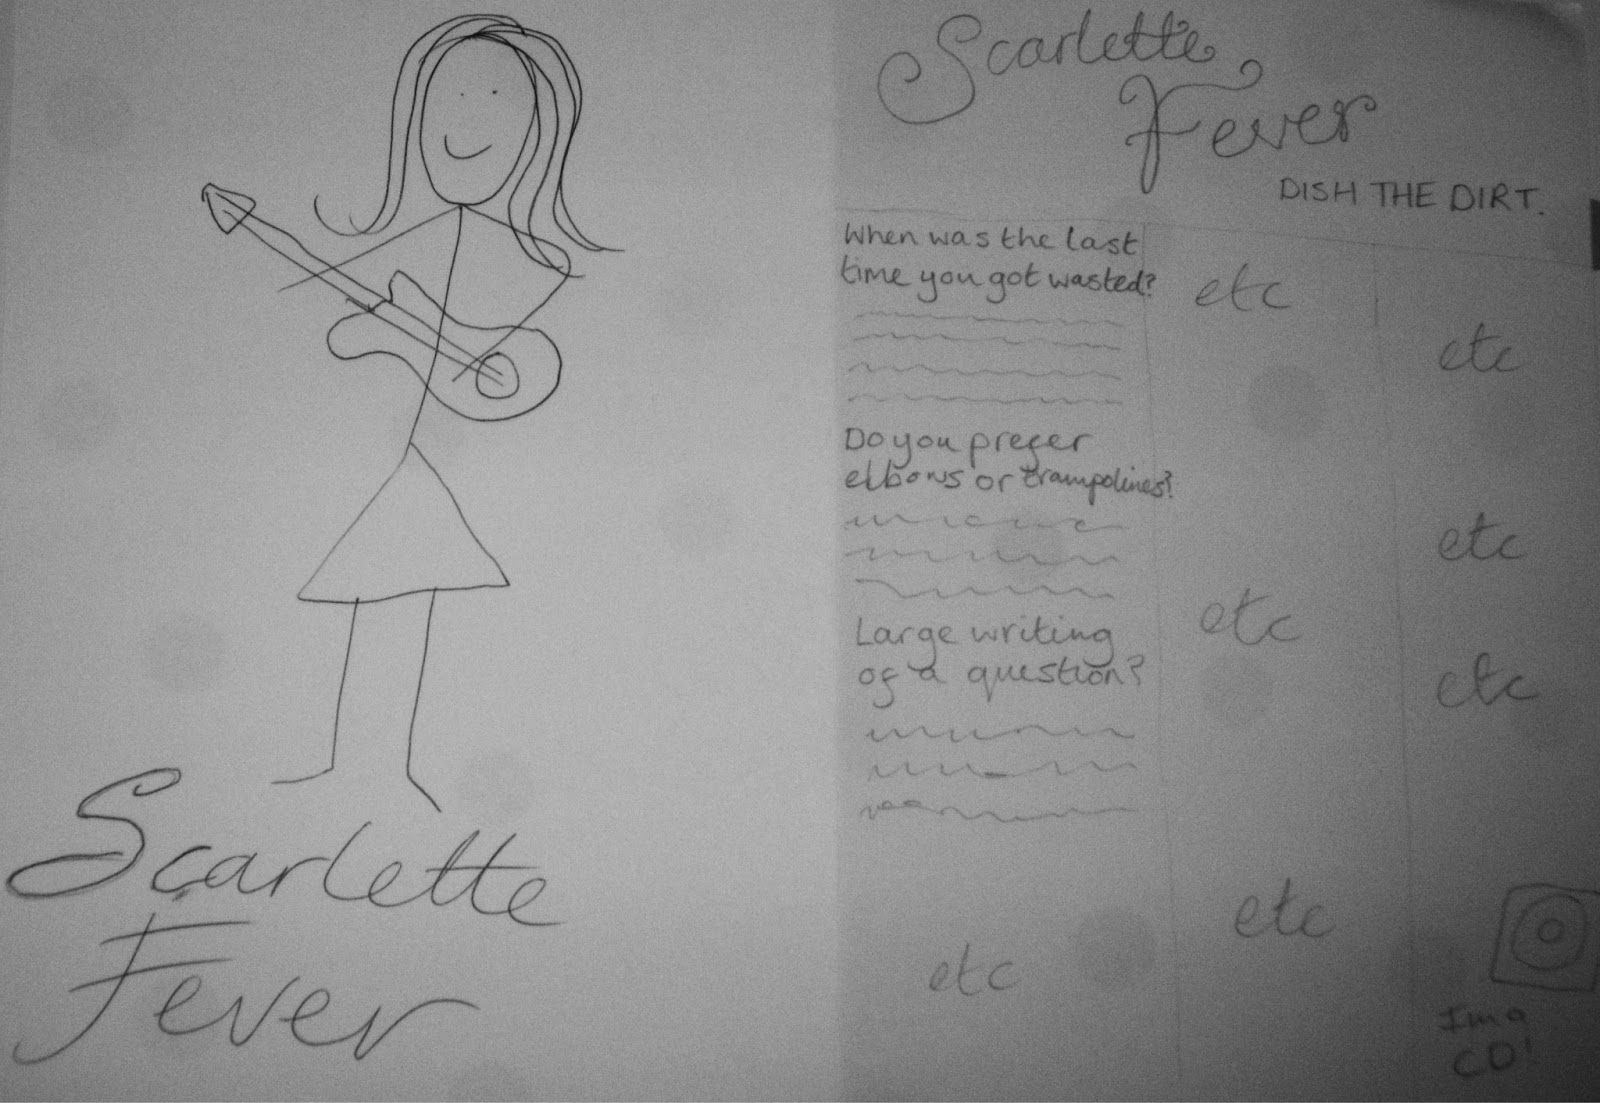 Scarlette
Fever
Scarlette
Fever
DISH THE DIRT.
When was the last
time you got wasted?
Do you prefer
elbows or trampolines?
Large writing
of a question?
etc
etc
etc
etc
etc
etc
etc
etc
I'm a
CD!